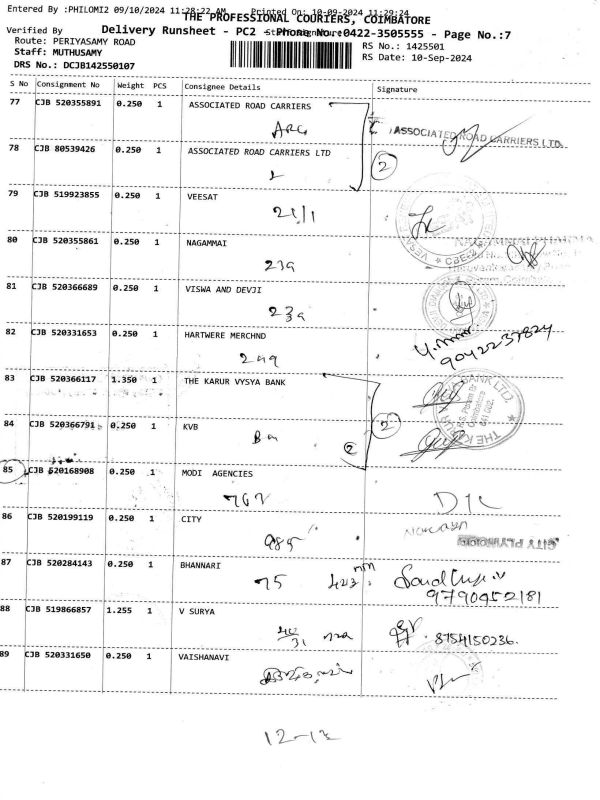 Entered By :PHILOMI2 09/10/2024 11:28:22 AM Printed On: 10-09-2024 11:29:24
THE PROFESSIONAL COURIERS, COIMBATORE
Verified By
Delivery Runsheet - PC2 - Phone No.:0422-3505555 - Page No.:7
Route: PERIYASAMY ROAD
RS No.: 1425501
Staff: MUTHUSAMY
RS Date: 10-Sep-2024
DRS No.: DCJB142550107
S No Consignment No Weight PCS Consignee Details Signature
77 CJB 520355891 0.250 1 ASSOCIATED ROAD CARRIERS
ARC
ASSOCIATED ROAD CARRIERS LTD.
78 CJB 80539426 0.250 1 ASSOCIATED ROAD CARRIERS LTD
2
79 CJB 519923855 0.250 1 VEESAT
21/1
CBE-2
80 CJB 520355861 0.250 1 NAGAMMAI
239
81 CJB 520366689 0.250 1 VISWA AND DEVJI
239
82 CJB 520331653 0.250 1 HARTWERE MERCHND
249
9042237824
83 CJB 520366117 1.350 1 THE KARUR VYSYA BANK
84 CJB 520366791 0.250 1 KVB
2
2
85 CJB 520168908 0.250 1 MODI AGENCIES
762
86 CJB 520199119 0.250 1 CITY
985
CITY PLYWOODS
87 CJB 520284143 0.250 1 BHANNARI
75
9790452181
88 CJB 519866857 1.255 1 V SURYA
31
8754150236.
89 CJB 520331650 0.250 1 VAISHANAVI
12-12